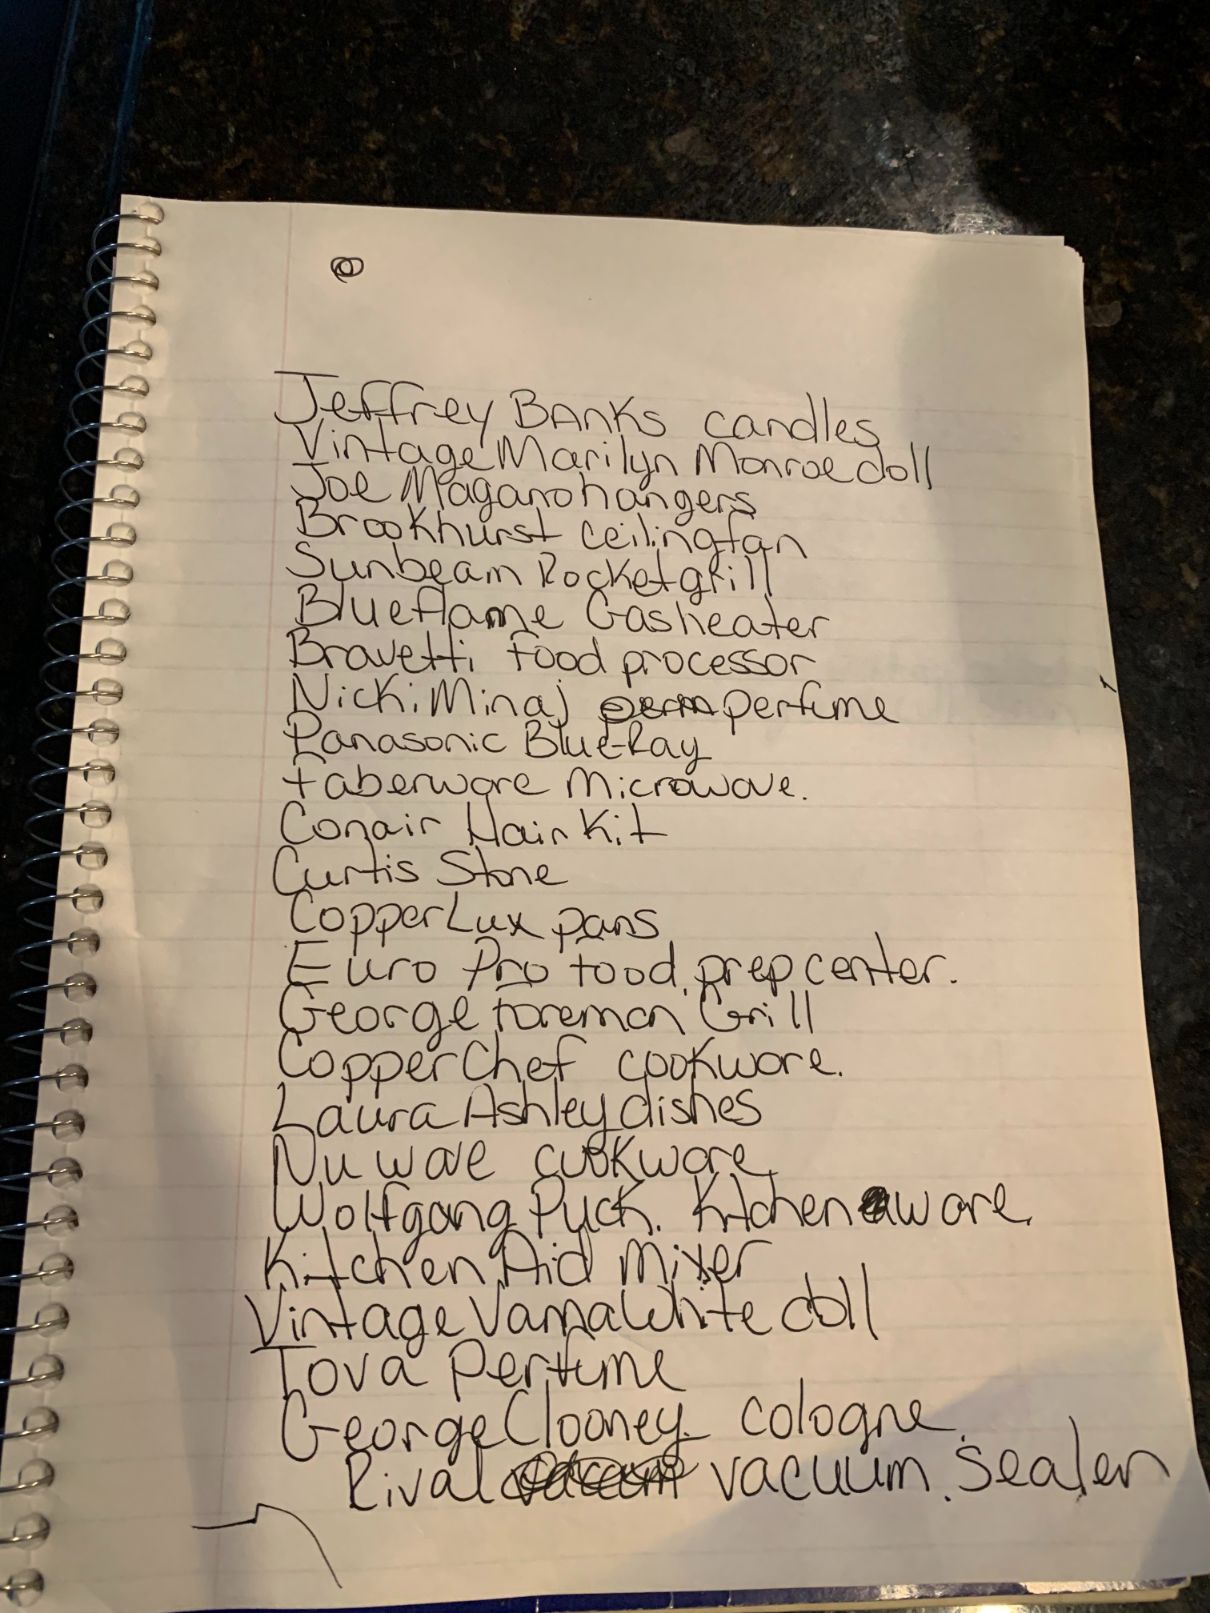 Jeffrey BANKS candles
Vintage Marilyn Monroe doll
Joe Magano hangers
Brookhurst ceiling fan
Sunbeam Rocket grill
Blueflame Gas heater
Bravetti food processor
Nicki Minaj perfume
Panasonic Blue-Ray
faberware Microwave.
Conair Hair Kit
Curtis Stone
Copper Lux pans
Euro Pro food prep center.
George foreman Grill
Copper Chef cookware.
Laura Ashley dishes
Nu wave cookware
Wolfgang Puck. Kitchenware.
Kitchen Aid Mixer
Vintage Vanna White doll
Tova Perfume
George Clooney cologne.
Rival vacuum sealer